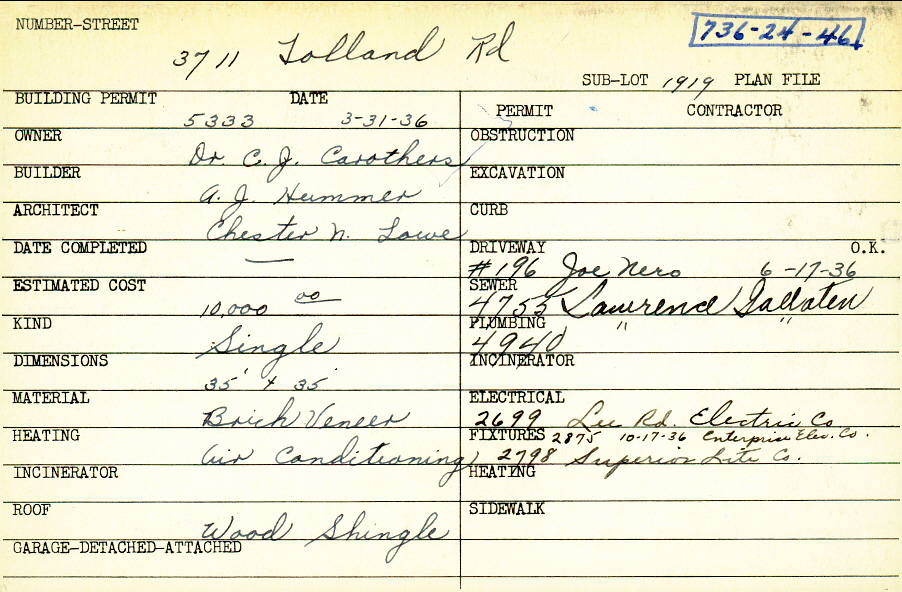 NUMBER-STREET
736-24-46
3711 Tolland Rd
SUB-LOT 1919 PLAN FILE
BUILDING PERMIT DATE
5333 3-31-36
OWNER
Dr. C. J. Carothers
BUILDER
A. J. Hummer
ARCHITECT
Chester N. Lowe
DATE COMPLETED
—
ESTIMATED COST
10,000 00
KIND
Single
DIMENSIONS
35' x 35'
MATERIAL
Brick Veneer
HEATING
Air Conditioning
INCINERATOR
ROOF
Wood Shingle
GARAGE-DETACHED-ATTACHED
PERMIT CONTRACTOR
OBSTRUCTION
EXCAVATION
CURB
DRIVEWAY O.K.
#196 Joe Nero 6-17-36
SEWER
4753 Lawrence
PLUMBING " "
4940
INCINERATOR
ELECTRICAL
2699 Lee Rd. Electric Co
FIXTURES 2875 10-17-36 Enterprise Elec. Co.
2798 Superior Lite Co.
HEATING
SIDEWALK